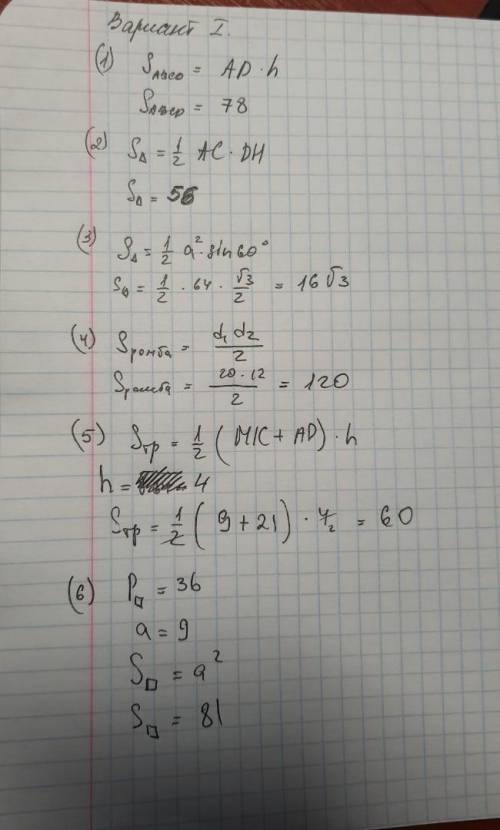 Вариант I.
(1) S ABCD = AD · h
S ABCD = 78
(2) S△ = 1/2 AC · DH
S△ = 56
(3) S△ = 1/2 a² · sin 60°
S△ = 1/2 · 64 · √3/2 = 16√3
(4) Sромба = d₁ d₂ / 2
Sромба = 20 · 12 / 2 = 120
(5) Sтр = 1/2 (MK + AD) · h
h = 4
Sтр = 1/2 (9 + 21) · 4 2 = 60
(6) P□ = 36
a = 9
S□ = a²
S□ = 81